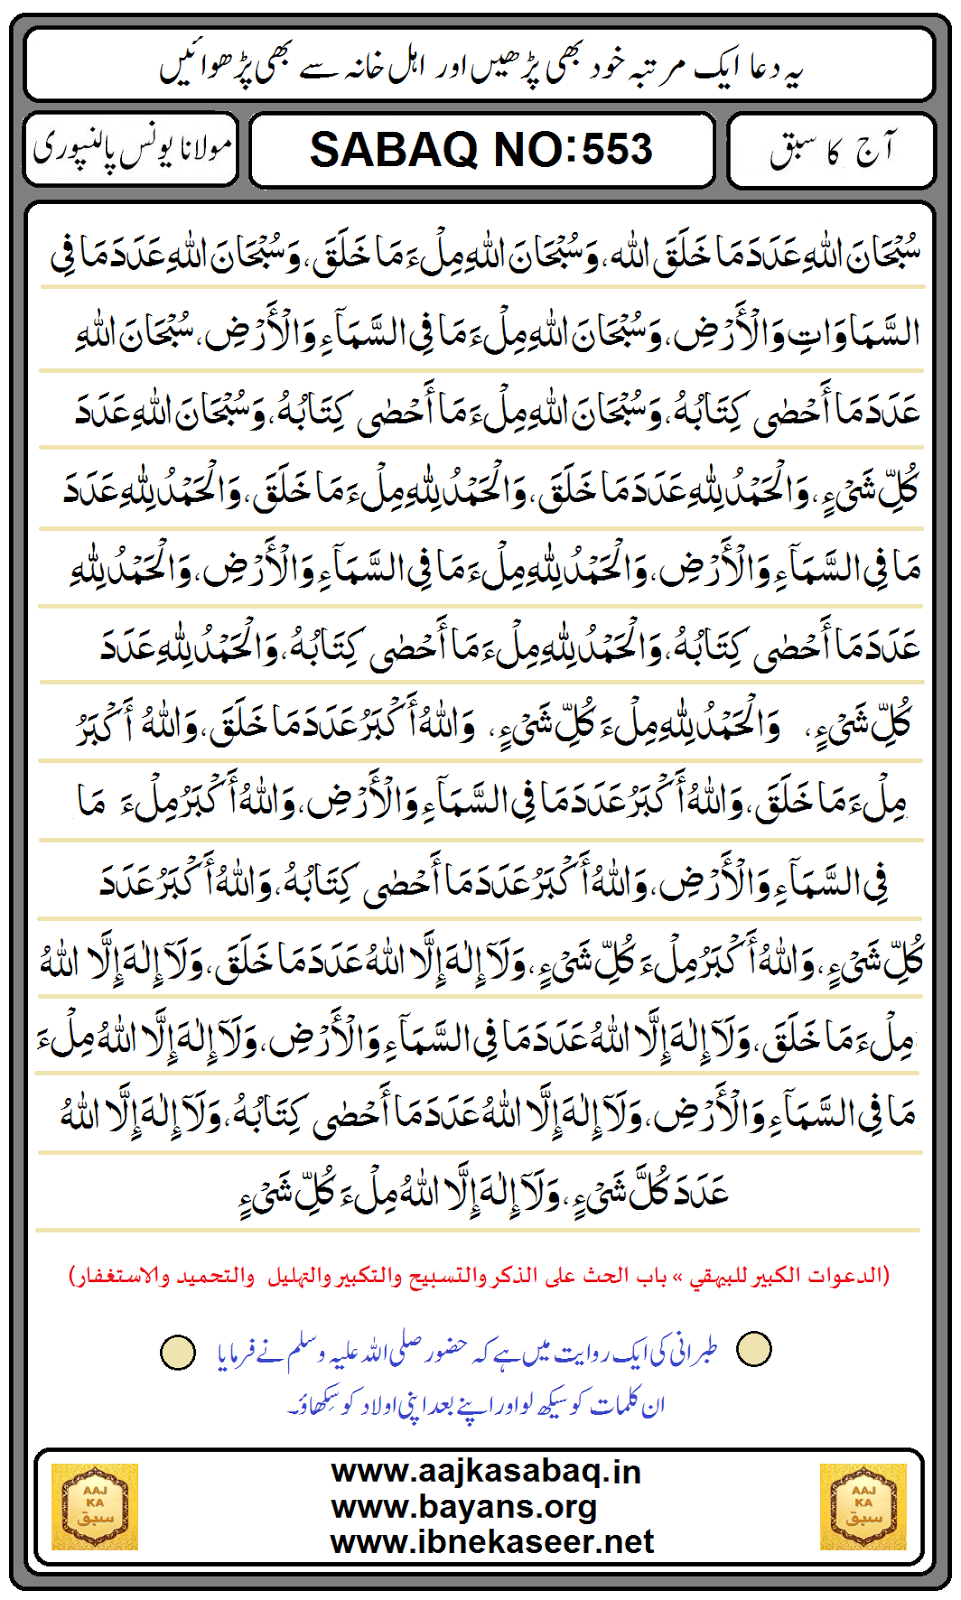 یہ دعا ایک مرتبہ خود بھی پڑھیں اور اہل خانہ سے بھی پڑھوائیں
آج کا سبق
SABAQ NO:553
مولانا یونس پالنپوری
سُبْحَانَ اللهِ عَدَدَ مَا خَلَقَ الله، وَسُبْحَانَ اللهِ مِلْءَ مَا خَلَقَ، وَسُبْحَانَ اللهِ عَدَدَ مَا فِي
السَّمَاوَاتِ وَالْأَرْضِ، وَسُبْحَانَ اللهِ مِلْءَ مَا فِي السَّمَآءِ وَالْأَرْضِ، سُبْحَانَ اللهِ
عَدَدَ مَا أَحْصٰى كِتَابُهُ، وَسُبْحَانَ اللهِ مِلْءَ مَا أَحْصٰى كِتَابُهُ، وَسُبْحَانَ اللهِ عَدَدَ
كُلِّ شَيْءٍ، وَالْحَمْدُ لِلهِ عَدَدَ مَا خَلَقَ، وَالْحَمْدُ لِلهِ مِلْءَ مَا خَلَقَ، وَالْحَمْدُ لِلهِ عَدَدَ
مَا فِي السَّمَآءِ وَالْأَرْضِ، وَالْحَمْدُ لِلهِ مِلْءَ مَا فِي السَّمَآءِ وَالْأَرْضِ، وَالْحَمْدُ لِلهِ
عَدَدَ مَا أَحْصٰى كِتَابُهُ، وَالْحَمْدُ لِلهِ مِلْءَ مَا أَحْصٰى كِتَابُهُ، وَالْحَمْدُ لِلهِ عَدَدَ
كُلِّ شَيْءٍ، وَالْحَمْدُ لِلهِ مِلْءَ كُلِّ شَيْءٍ، وَاللهُ أَكْبَرُ عَدَدَ مَا خَلَقَ، وَاللهُ أَكْبَرُ
مِلْءَ مَا خَلَقَ، وَاللهُ أَكْبَرُ عَدَدَ مَا فِي السَّمَآءِ وَالْأَرْضِ، وَاللهُ أَكْبَرُ مِلْءَ مَا
فِي السَّمَآءِ وَالْأَرْضِ، وَاللهُ أَكْبَرُ عَدَدَ مَا أَحْصٰى كِتَابُهُ، وَاللهُ أَكْبَرُ عَدَدَ
كُلِّ شَيْءٍ، وَاللهُ أَكْبَرُ مِلْءَ كُلِّ شَيْءٍ، وَلَآ إِلٰهَ إِلَّا اللهُ عَدَدَ مَا خَلَقَ، وَلَآ إِلٰهَ إِلَّا اللهُ
مِلْءَ مَا خَلَقَ، وَلَآ إِلٰهَ إِلَّا اللهُ عَدَدَ مَا فِي السَّمَآءِ وَالْأَرْضِ، وَلَآ إِلٰهَ إِلَّا اللهُ مِلْءَ
مَا فِي السَّمَآءِ وَالْأَرْضِ، وَلَآ إِلٰهَ إِلَّا اللهُ عَدَدَ مَا أَحْصٰى كِتَابُهُ، وَلَآ إِلٰهَ إِلَّا اللهُ
عَدَدَ كُلَّ شَيْءٍ، وَلَآ إِلٰهَ إِلَّا اللهُ مِلْءَ كُلِّ شَيْءٍ
(الدعوات الكبير للبيهقي » باب الحث على الذكر والتسبيح والتكبير والتهليل والتحميد والاستغفار)
طبرانی کی ایک روایت میں ہے کہ حضور صلی اللہ علیہ وسلم نے فرمایا
ان کلمات کو سیکھ لو اور اپنے بعد اپنی اولاد کو سِکھاؤ۔
www.aajkasabaq.in
www.bayans.org
www.ibnekaseer.net
AAJ
KA
سبق
AAJ
KA
سبق